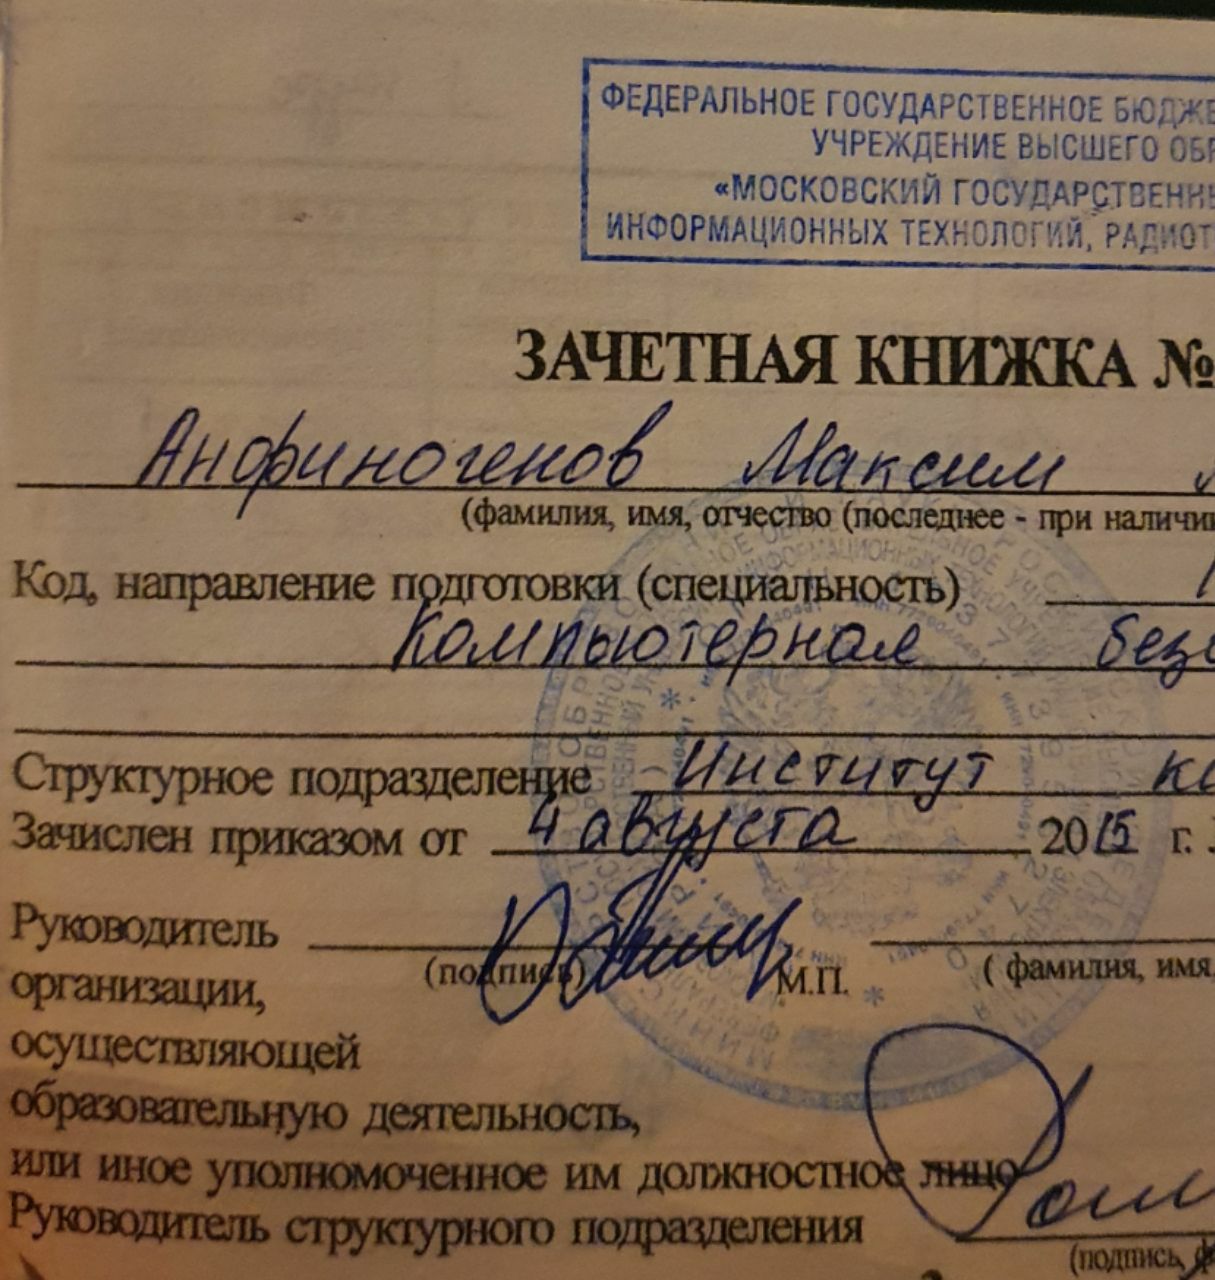 ФЕДЕРАЛЬНОЕ ГОСУДАРСТВЕННОЕ БЮДЖЕ
УЧРЕЖДЕНИЕ ВЫСШЕГО ОБР
«МОСКОВСКИЙ ГОСУДАРСТВЕНН
ИНФОРМАЦИОННЫХ ТЕХНОЛОГИЙ, РАДИОТ
ЗАЧЕТНАЯ КНИЖКА №
Анфиногенов Максим
(фамилия, имя, отчество (последнее - при наличии
Код, направление подготовки (специальность)
Компьютерная безо
Структурное подразделение Институт ко
Зачислен приказом от 4 августа 2015 г.
Руководитель
(подпись) М.П. ( фамилия, имя,
организации,
осуществляющей
образовательную деятельность,
или иное уполномоченное им должностное лицо
Руководитель структурного подразделения
(подпись, ф